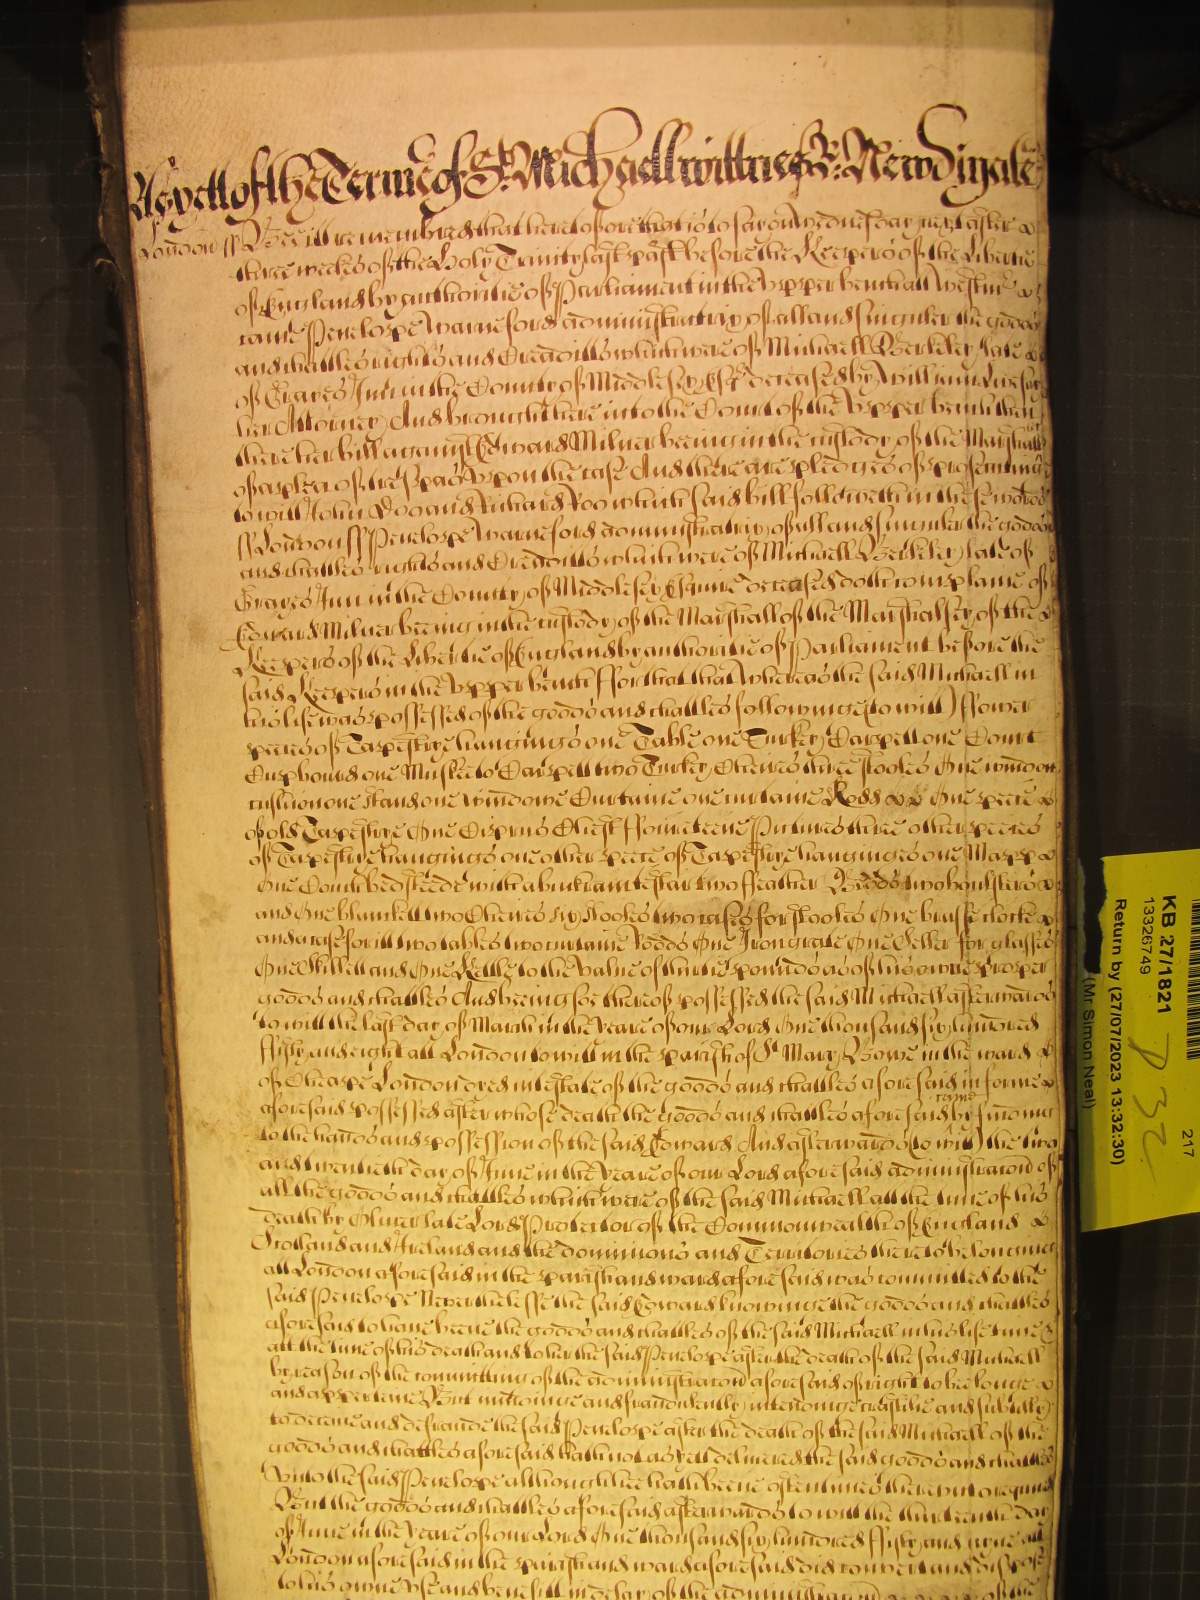 As yett of the Terme of St. Michaell wittnes R: Newdigate
London ss Bee it remembred that heretofore that is to say on Wednesday next after
three weekes of the Holy Trinity last past before the Keepers of the Libertie
of England by authoritie of Parliament in the Upper bench att Westmr
came Penelope Warneford administratrix of all and singuler the goods
and chattles rights and Creditts which were of Michaell Berkeley late
of Grayes Inn in the County of Middlesex Esqr deceased by William Livesay
her Attorney And brought here into the Court of the Upper bench then
there her bill against Edward Milner beeing in the custody of the Marshall
of a plea of trespas upon the case And there are pledges of prosecuting
to witt John Doo and Richard Roo which said bill followeth in these wordes
ss London ss Penelope Warneford administratrix of all and singuler the goods
and chattles rights and Creditts which were of Michaell Berkeley late of
Grayes Inn in the County of Middlesex Esquire deceased doth complaine of
Edward Milner beeing in the custody of the Marshall of the Marshalsey of the
Keepers of the Libertie of England by authoritie of Parliament before the
said Keepers in the Upper bench ffor that that Whereas the said Michaell in
his life was possessed of the goods and chattles followinge (to witt) ffower
peeces of Tapestrye hangings one Table one Turkey Carpett one Court
Cupboard one Musketo Carpett two Turkey Cheires three stooles One window
cushion one stand one windowe Curtaine one curtaine Rodd One peece
of old Tapestrye One Cyprus Chest ffourteene Pictures three other peeces
of Tapestrye hangings one other peece of Tapestrye hanginges one Mapp
One Couch bedsteede with a buckram testar two ffeather Bedds two boulsters
and One blanckett two Cheires six stooles two cases for stooles One brasse clocke
and case for itt two tables two curtaine Rodds One Iron grate One Seller for glasses
One Skillett and One Kettle to the value of thirtie pounds as of his owne proper
goods and chattles And beeing soe thereof possessed the said Michaell afterwards
to witt the last day of March in the yeare of our Lord One thousand six hundred
ffifty and eight att London to witt in the parish of St Mary Bowe in the ward
of Cheape London dyed intestate of the goods and chattles aforesaid in forme
aforesaid possessed after whose death the goods and chattles aforesaid came by findinge
to the hands and possession of the said Edward And afterwards (to witt) the two
and twentieth day of June in the yeare of our Lord aforesaid administracion of
all the goods and chattles which were of the said Michaell att the time of his
death by Oliver late Lord Protector of the Commonwealth of England
Scotland and Ireland and the dominions and Territories thereto belonging
att London aforesaid in the parish and ward aforesaid was committed to the
said Penelope Neverthelesse the said Edward knowinge the goods and chattles
aforesaid to have beene the goods and chattles of the said Michaell in his life time &
att the time of his death and to her the said Penelope after the death of the said Michaell
by reason of the committing of the administracion aforesaid of right to belonge
and apperteyne But mindinge and fraudulently intendinge craftilie and subtilly
to deceave and defraude the said Penelope after the death of the said Michaell of the
goods and chattles aforesaid hath not as yett delivered the said goods and chattles
unto the said Penelope although hee hath beene often times thereunto required
But the goods and chattles aforesaid afterwards to witt the thirteenth day
of June in the yeare of our Lord One thousand six hundred ffifty and nyne att
London aforesaid in the parish and ward aforesaid did convert and dispose
to his owne use and benefitt in delay of the administracion of the
KB 27/1821
13326749
217
Return by (27/07/2023 13:32:30)
(Mr Simon Neal)